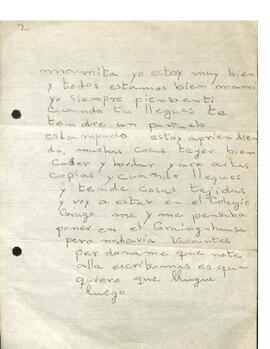 2
mmamita yo estoy muy bien
y todos estamos bien mami
yo siempre piensoenti
cuando tu llegues te
tendre un pañuelo
estampado. estoy aprendien
do, muchas cosas tejer bien
Coser y bordar y
copias y cuando llegues
y tende cosas tejidas
y voy a estar en el Colegio
me y me pensaba
poner en el
pero nohavia Vacantes
perdoname que note
alla escrito mas es que
quiero que llugue
luego